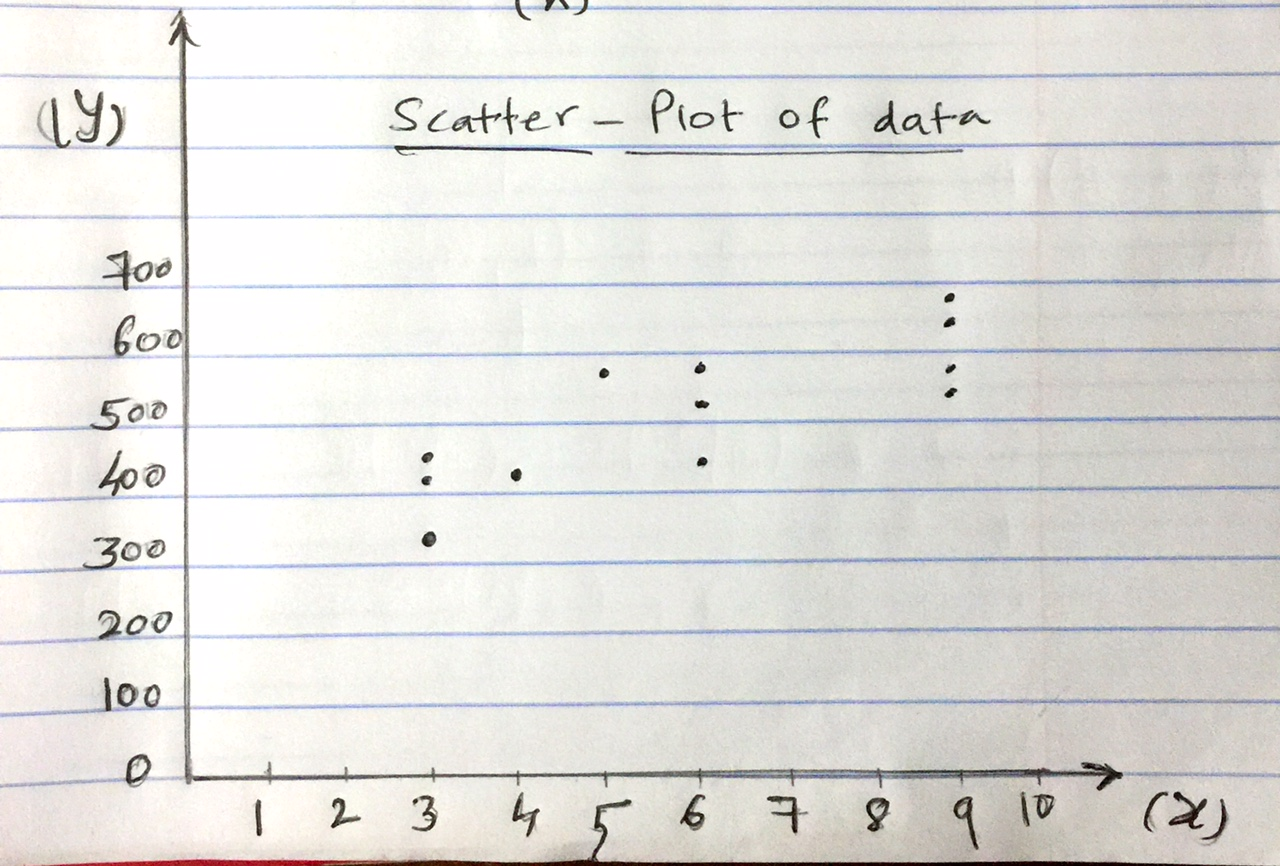 (x)
(y)
Scatter - Plot of data
700
600
500
400
300
200
100
0
1 2 3 4 5 6 7 8 9 10 (x)